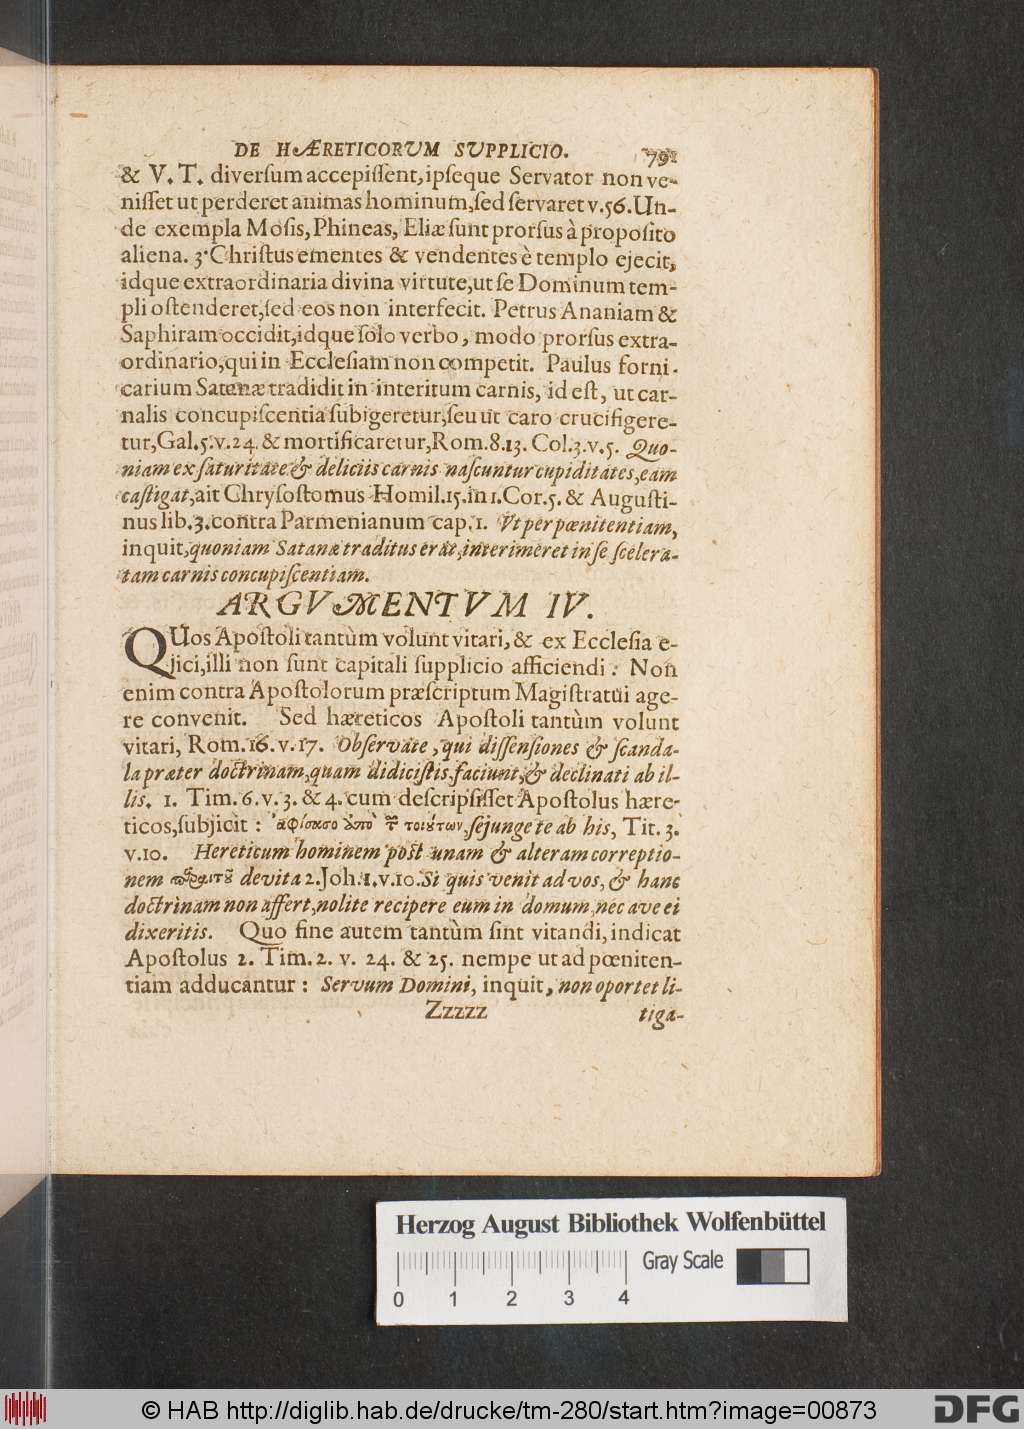 DE HÆRETICORUM SUPPLICIO. 791
& V. T. diverſum accepiſſent, ipſeque Servator non ve-
niſſet ut perderet animas hominum, ſed ſervaret v. 56. Un-
de exempla Moſis, Phineas, Eliæ ſunt prorſus à propoſito
aliena. 3. Chriſtus ementes & vendentes è templo ejecit,
idque extraordinaria divina virtute, ut ſe Dominum tem-
pli oſtenderet, ſed eos non interfecit. Petrus Ananiam &
Saphiram occidit, idque ſolo verbo, modo prorſus extra-
ordinario, qui in Eccleſiam non competit. Paulus forni-
carium Satanæ tradidit in interitum carnis, id eſt, ut car-
nalis concupiſcentia ſubigeretur, ſeu ut caro crucifigere-
tur, Gal. 5. v. 24. & mortificaretur, Rom. 8. 13. Col. 3. v. 5. Quo-
niam ex ſaturitate & deliciis carnis naſcuntur cupiditates, eam
caſtigat, ait Chryſoſtomus Homil. 15. in 1. Cor. 5. & Auguſti-
nus lib. 3. contra Parmenianum cap. 1. Vt per pœnitentiam,
inquit, quoniam Satanæ traditus erat, interimeret in ſe ſcelera-
tam carnis concupiſcentiam.
ARGVMENTVM IV.
QUos Apoſtoli tantùm volunt vitari, & ex Eccleſia e-
jici, illi non ſunt capitali ſupplicio afficiendi: Non
enim contra Apoſtolorum præſcriptum Magiſtratui age-
re convenit. Sed hæreticos Apoſtoli tantùm volunt
vitari, Rom. 16. v. 17. Obſervate, qui diſſenſiones & ſcanda-
la præter doctrinam, quam didiciſtis, faciunt, & declinati ab il-
lis. 1. Tim. 6. v. 3. & 4. cum deſcripſiſſet Apoſtolus hære-
ticos, ſubjicit: ἀφίσασο ἀπὸ τ τοιούτων, ſejunge te ab his, Tit. 3.
v. 10. Hereticum hominem poſt unam & alteram correptio-
nem παραιτοῦ devita 2. Joh. 1. v. 10. Si quis venit ad vos, & hanc
doctrinam non affert, nolite recipere eum in domum, nec ave ei
dixeritis. Quo fine autem tantùm ſint vitandi, indicat
Apoſtolus 2. Tim. 2. v. 24. & 25. nempe ut ad pœniten-
tiam adducantur: Servum Domini, inquit, non oportet li-
Zzzzz tiga-
Herzog August Bibliothek Wolfenbüttel
Gray Scale
0 1 2 3 4
© HAB http://diglib.hab.de/drucke/tm-280/start.htm?image=00873
DFG